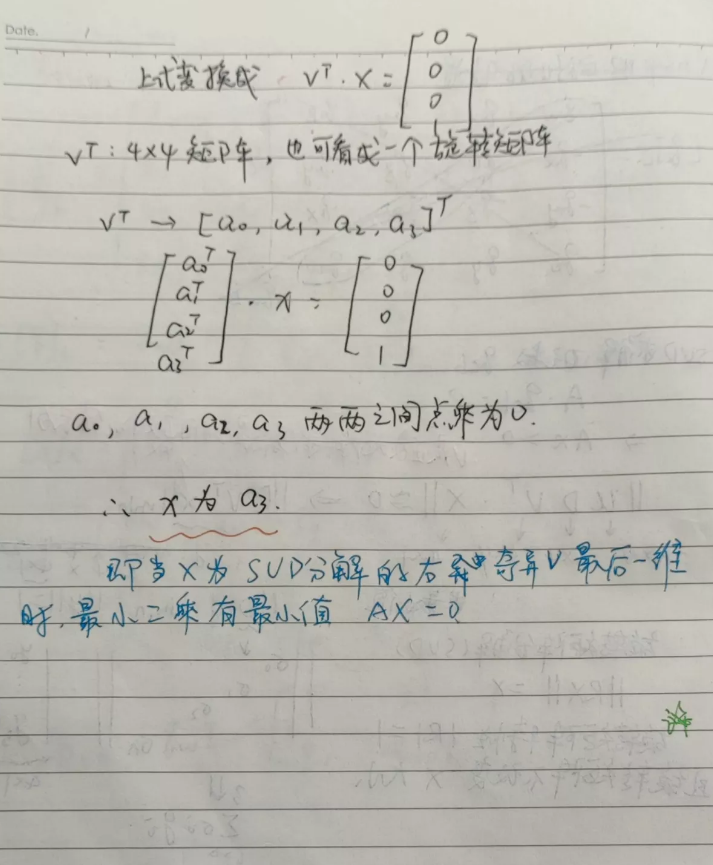 Date. /
上式变换成 V^T · X = [0 0 0 1]
V^T : 4×4 矩阵, 也可看成一个旋转矩阵
V^T → [a₀, a₁, a₂, a₃]^T
[a₀^T a₁^T a₂^T a₃^T] · x = [0 0 0 1]
a₀, a₁, a₂, a₃ 两两之间点乘为0.
∴ x 为 a₃.
即当 X 为 SVD分解的右 奇异V 最后一维
时, 最小二乘有最小值 AX = 0